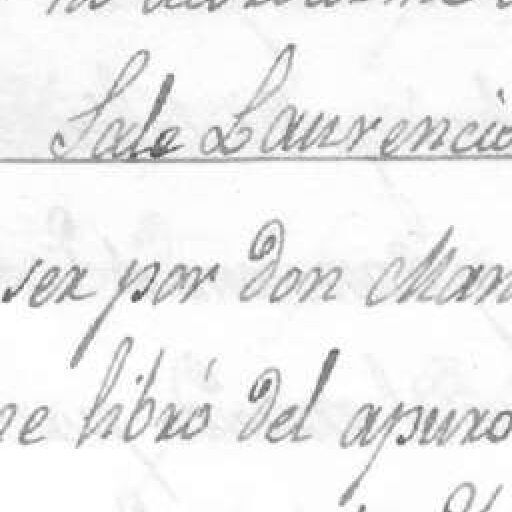 Sale Laurencio
ser por don Man
me libró del apuro